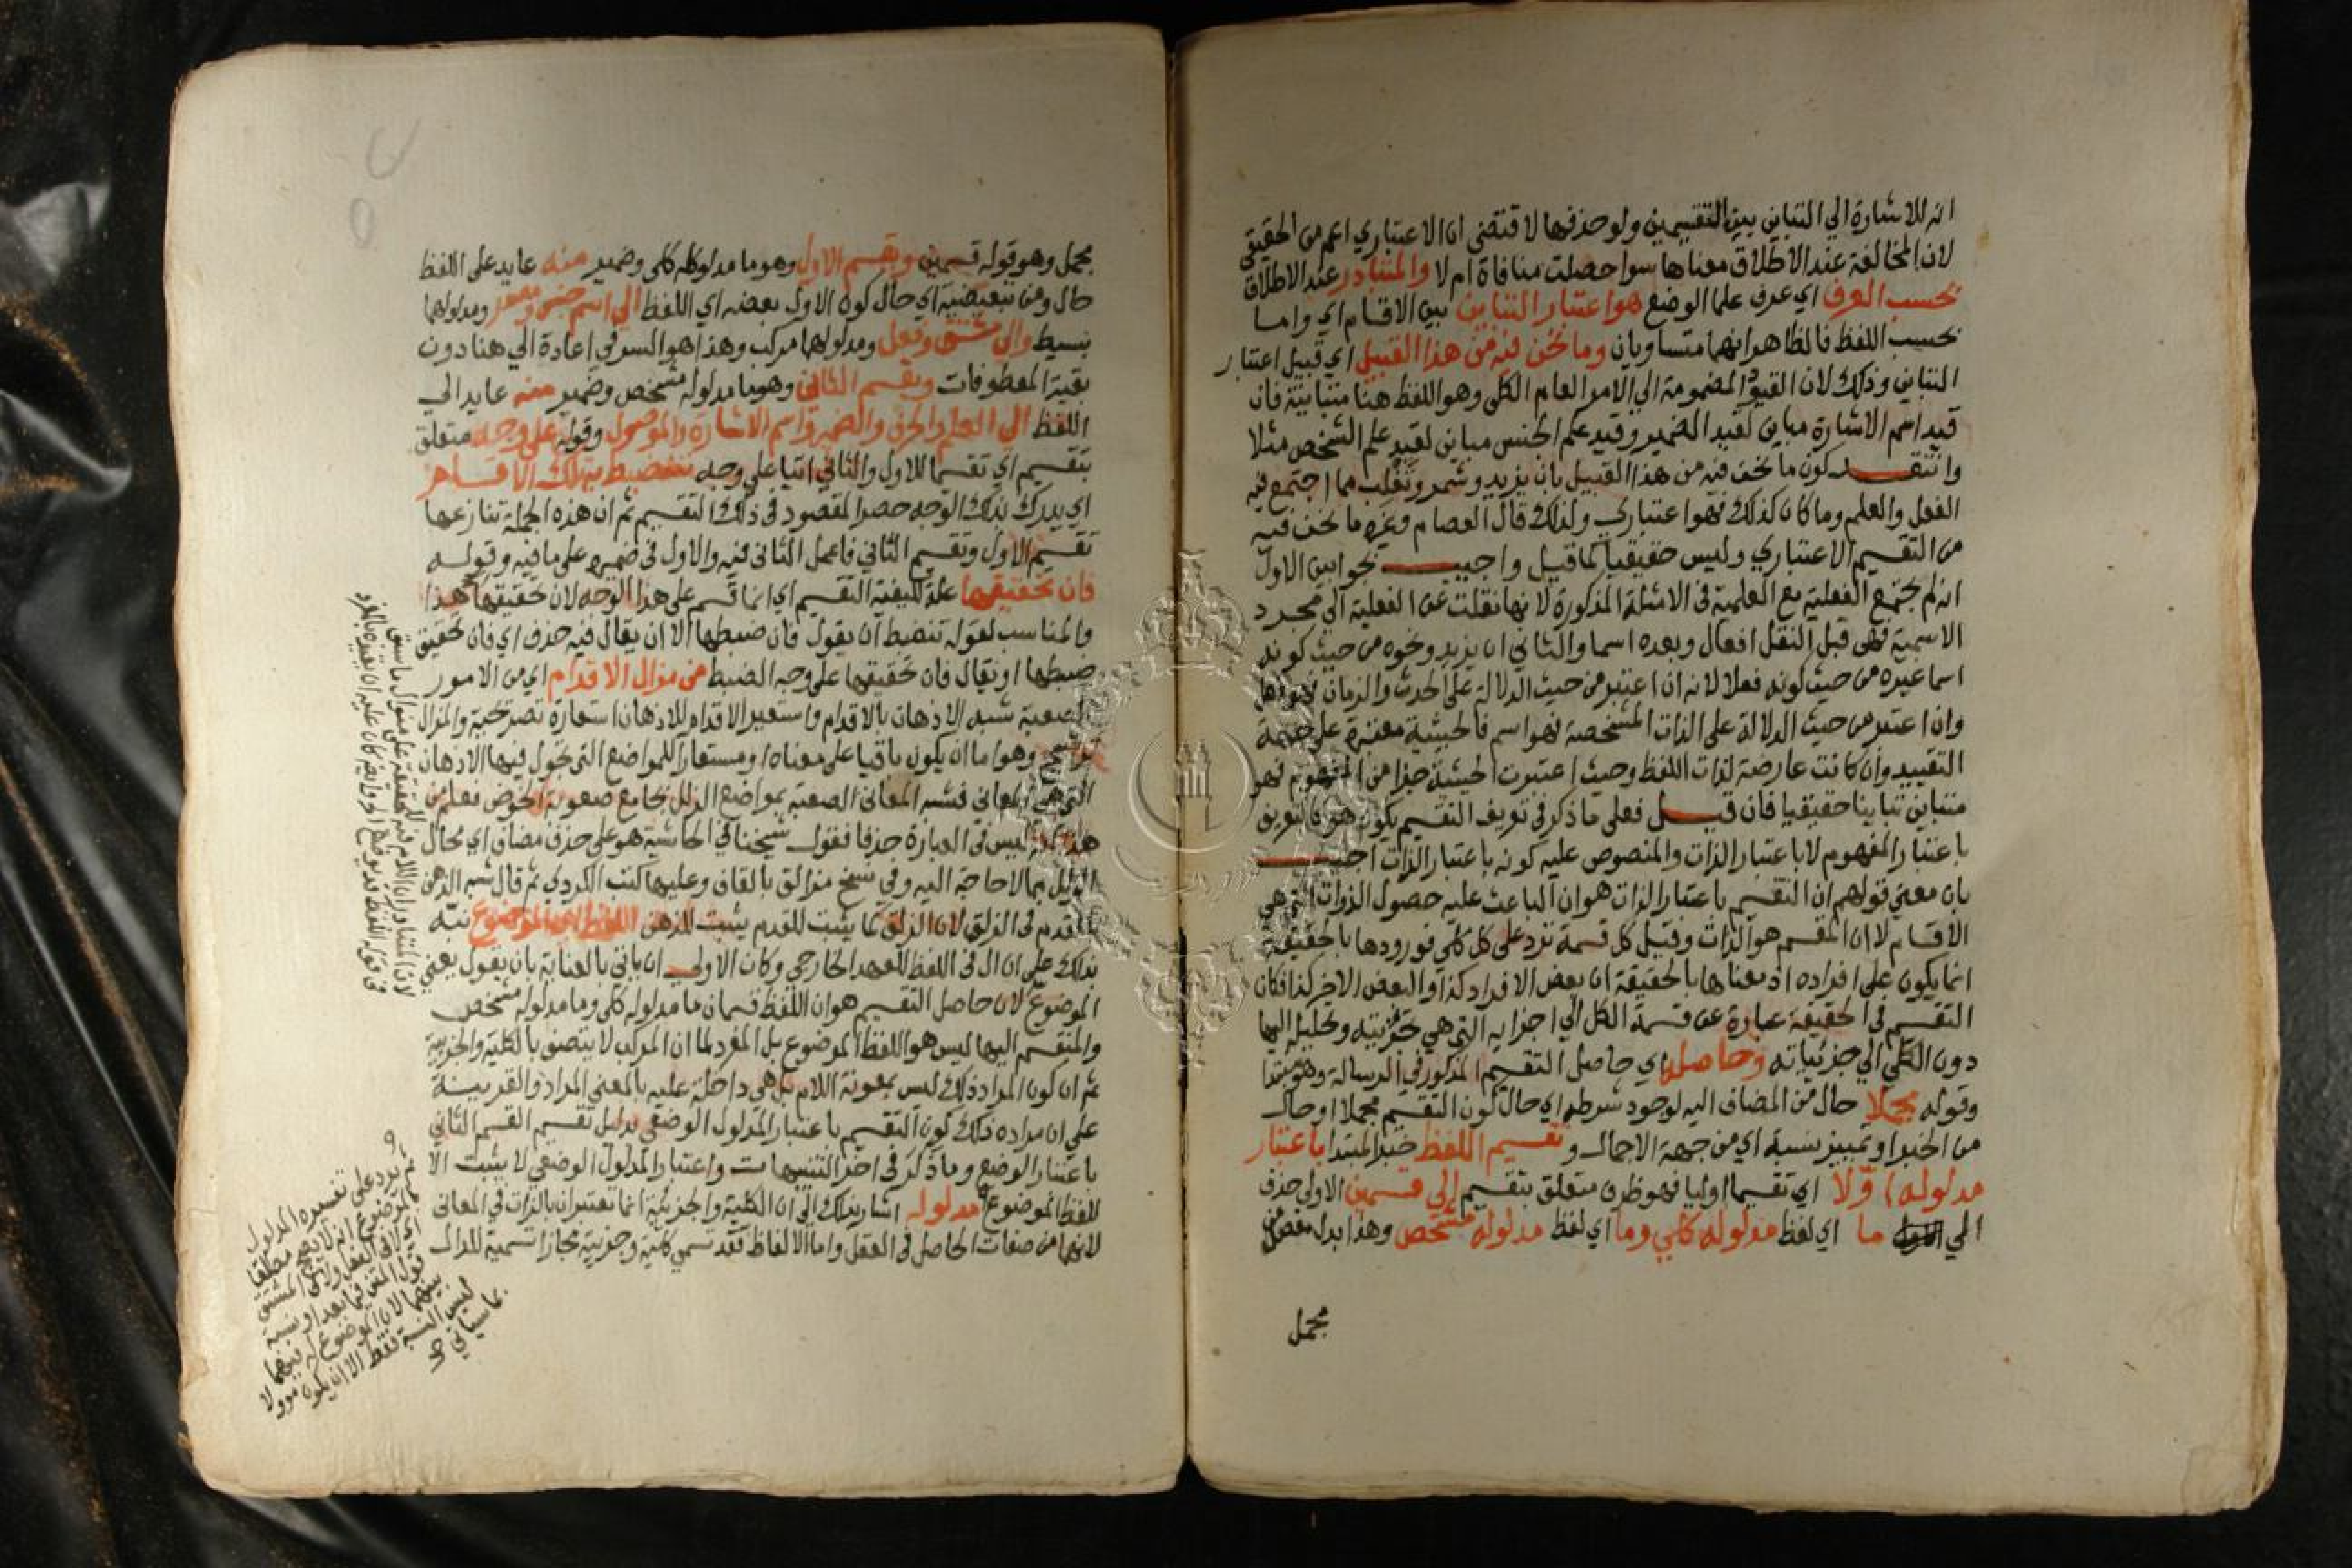 انه للاشارة الي التباين بين التقسيمين ولو حذفها لاقتضى ان الاعتباري اعم من الحقيقي
لان المخالفة عند الاطلاق معناها سوا حصلت منافاة ام لا والمتبادر عند الاطلاق
بحسب العرف اي عرف علما الوضع هو اعتبار التباين بين الاقسام اي واما
بحسب اللفظ فالظاهر انهما متساويان وما نحن فيه من هذا القبيل اي قبيل اعتبار
التباين وذلك لان القيود المضمومة الي الامر العام الكلي وهو اللفظ هنا متباينة فان
قيد اسم الاشارة مباين لقيد الضمير وقيد علم الجنس مباين لقيد علم الشخص مثلا
وانتقد كون ما نحن فيه من هذا القبيل بان يزيد وشمر وتغلب مما اجتمع فيه
الفعل والعلم وما كان كذلك فهو اعتباري ولذلك قال العصام وغيره ما نحن فيه
من التقسيم الاعتباري وليس حقيقيا كما قيل واجيب بجوابين الاول
انه لم يجتمع الفعلية مع العلمية في الامثلة المذكورة لانها نقلت عن الفعلية الي مجرد
الاسمية فهى قبل النقل افعال وبعده اسما والثاني ان يزيد ونحوه من حيث كونه
اسما غيره من حيث كونه فعلا لانه ان اعتبر من حيث الدلالة على الحدث والزمان
وان اعتبر من حيث الدلالة على الذات المشخصة فهو اسم فالحيثية معتبرة على جهة
التقييد وان كانت عارضة لذات اللفظ وحيث اعتبرت الحيثية جزا من المفهوم فهو
متباين تباينا حقيقيا فان قيل فعلى ما ذكر في تعريف التقسيم يكون هو كالتعريف
باعتبار المفهوم لا باعتبار الذات والمنصوص عليه كونه باعتبار الذات اجيب
بان معنى قولهم ان التقسيم باعتبار الذات هو ان الباعث عليه حصول الذوات التي هي
الاقسام لا ان المقسم هو الذات وقيل كل قسمة ترد على كل كلي فورودها بالحقيقة
انما يكون على افراده اذ معناها بالحقيقة ان بعض الافراد كذا والبعض الاخر كذا فكان
التقسيم في الحقيقة عبارة عن قسمة الكل الي اجزايه التي هي وتحليله اليها
دون الكلي الي جزئياته وحاصله اي حاصل التقسيم المذكور في الرسالة وهو مبتدا
وقوله مجملا حال من المضاف اليه لوجود شرطه اي حال كون التقسيم مجملا او حال
من الخبر او تمييز نسبة اي من جهة الاجمال وتقسيم اللفظ خبر المبتدا باعتبار
مدلوله اولا اي تقسيما اوليا فهو ظرف متعلق بتقسيم الي قسمين الاولى حذف
الي ما اي لفظ مدلوله كلي وما اي لفظ مدلوله مشخص وهذا بدل مفصل من
مجمل
مجمل وهو قوله قسمين ويقسم الاول وهو ما مدلوله كلي وضمير منه عايد على اللفظ
حال ومن تبعيضية اي حال كون الاول بعضه اي اللفظ الي اسم جنس ومصدر ومدلولهما
بسيط والي مشتق وفعل ومدلولهما مركب وهذا هو السر في اعادة الي هنا دون
بقية المعطوفات ويقسم الثاني وهو ما مدلوله مشخص وضمير منه عايد الي
اللفظ الي العلم والحرف والضمير واسم الاشارة والموصول وقوله على وجه متعلق
بتقسيم اي تقسيما للاول والثاني اتيا على وجه تنضبط بذلك الاقسام
اي يدرك بذلك الوجه حصر المقصود في ذلك التقسيم ثم ان هذه الجملة تنازعها
تقسيم الاول وتقسيم الثاني فاعمل الثاني فيه والاول في ضميره على ما فيه وقوله
فان تحقيقها علة لكيفية التقسيم اي انما قسم على هذا الوجه لان تحقيقها هذا
والمناسب لقوله تنضبط ان يقول فان ضبطها الا ان يقال فيه حذف اي فان تحقيق
ضبطها او يقال فان تحقيقها على وجه الضبط من مزال الاقدام اي من الامور
الصعبة شبه الاذهان بالاقدام واستعير الاقدام للاذهان استعارة تصريحية والمزال
ترشيح وهو اما ان يكون باقيا على معناه او مستعارا للمواضع التي تجول فيها الاذهان
التي هي المعاني فشبه المعاني الصعبة بمواضع الزلل بجامع صعوبة الخوض فعلم من
هذا انه ليس في العبارة حذفا فقول شيخنا في الحاشية هو على حذف مضاف اي محال
الزلل مما لا حاجة اليه وفي نسخ مزالق بالقاف وعليها كتب الكردي ثم قال شبه الذهن
بالقدم في الزلق لان الزلق كما يثبت للقدم يثبت للذهن اللفظ اي الموضوع نبه
بذلك على ان ال في اللفظ للعهد الخارجي وكان الاولى ان ياتي بالعناية بان يقول يعني
الموضوع لان حاصل التقسيم هو ان اللفظ قسمان ما مدلوله كلي وما مدلوله مشخص
والمنقسم اليها ليس هو اللفظ الموضوع بل المفرد لما ان المركب لا يتصف بالكلية والجزيية
ثم ان كون المراد ذلك ليس بمعونة اللام بل هي داخلة عليه بالمعنى المراد والقرينة
على ان مراده ذلك كون التقسيم باعتبار المدلول الوضعي بدليل تقسيم القسم الثاني
باعتبار الوضع وما ذكر في اخر التنبيهات واعتبار المدلول الوضعي لا يثبت الا
للفظ الموضوع مدلوله اشار بذلك الي ان الكلية والجزيية انما تعتبران بالذات في المعاني
لانهما من صفات الحاصل في العقل واما الالفاظ فقد تسمي كلية وجزيية مجازا تسمية للدال
لان المتبادر ان اللام فيه للحقيقة على منوال ما سبق
في قوله اللفظ قد يوضع
يرد على تفسيره المدلول
بالموضوع انه لا يصح مطلقا
اي لا في الفعل ولا في المشتق
قول المتن فيما بعد او نسبة
بينهما لان الموضوع له فيهما
ليس النسبة فقط الا ان يكون موولا
بما سياتي